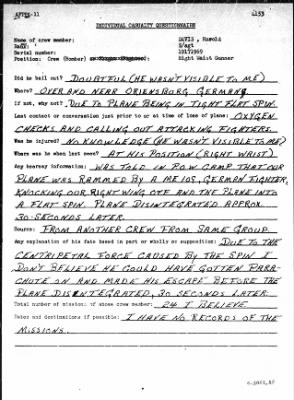 INDIVIDUAL CASUALTY QUESTIONNAIRE
Name of crew member: DAVIS, Harold
Rank: S/Sgt
Serial number:
Position: Crew (Bomber) Right Waist Gunner
Did he bail out? DOUBTFUL (HE WASN'T VISIBLE TO ME)
Where? OVER AND NEAR GERMANY
If not, why not? DUE TO PLANE BEING IN TIGHT FLAT SPIN.
Last contact or conversation just prior to or at time of loss of plane: OXYGEN
CHECKS AND CALLING OUT ATTACKING FIGHTERS.
Was he injured? NO KNOWLEDGE (HE WASN'T VISIBLE TO ME)
Where was he when last seen? AT HIS POSITION (RIGHT WAIST)
Any hearsay information: WAS TOLD IN P.O.W. CAMP THAT OUR
PLANE WAS RAMMED BY A ME 105, GERMAN FIGHTER,
KNOCKING OUR RIGHT WING OFF AND THE PLANE INTO
A FLAT SPIN. PLANE DISINTEGRATED APPROX.
30-SECONDS LATER.
Source: FROM ANOTHER CREW FROM SAME GROUP.
Any explanation of his fate based in part or wholly on supposition: DUE TO THE
CENTRIPETAL FORCE CAUSED BY THE SPIN I
DON'T BELIEVE HE COULD HAVE GOTTEN PARA-
CHUTE ON AND MADE HIS ESCAPE BEFORE THE
PLANE DISINTEGRATED, 30 SECONDS LATER
Total number of missions of above crew member: 24 I BELIEVE
Dates and destinations if possible: I HAVE NO RECORDS OF THE
MISSIONS.